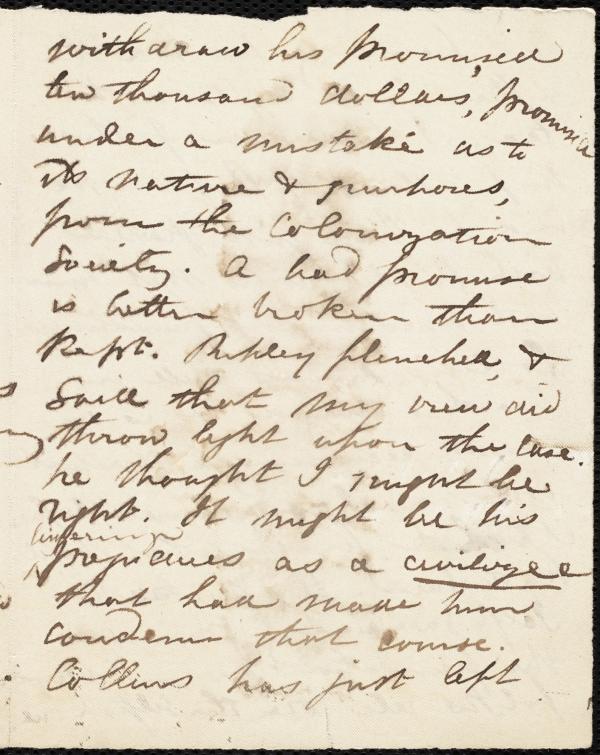 withdraw his promised
ten thousand dollars, promised
under a mistake as to
its nature & purposes,
from the Colonization
Society. A bad promise
is better broken than
kept. Ripley flinched, &
said that my view did
throw light upon the case.
he thought I might be
right. It might be his
lingering
prejudices as a civilizee
that had made him
condemn that course.
Collins has just left